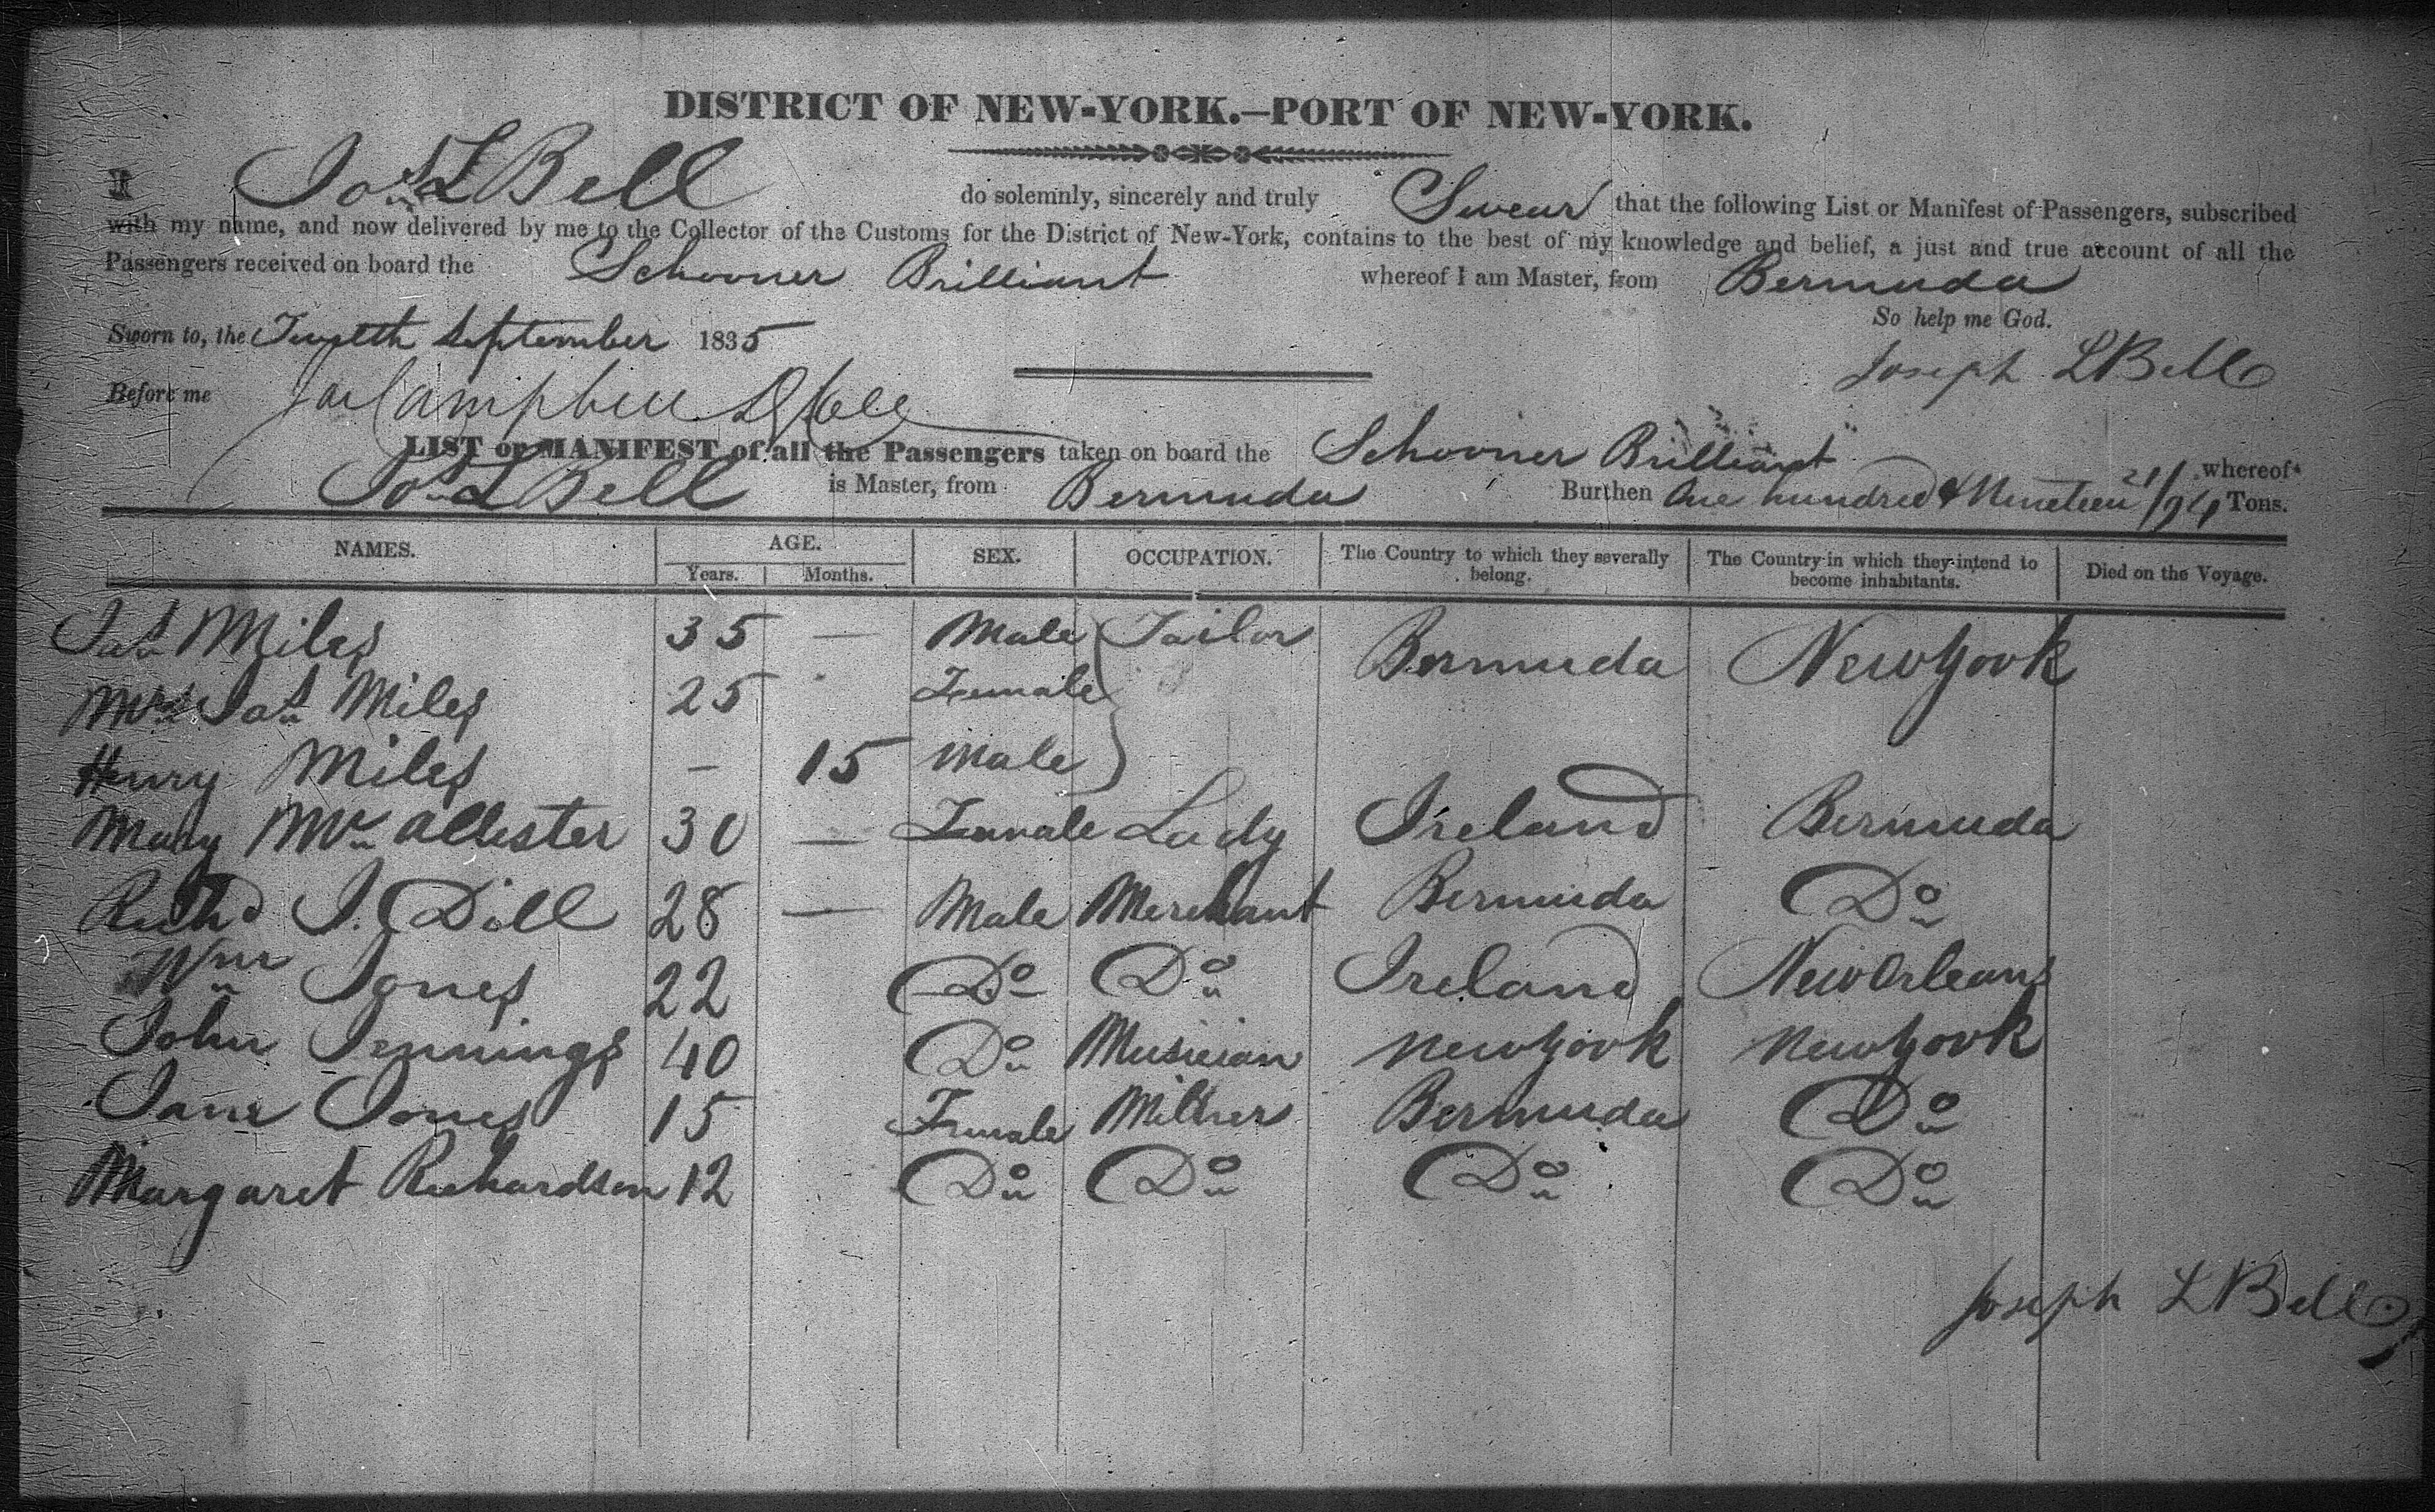 DISTRICT OF NEW-YORK.—PORT OF NEW-YORK.
I Jos L Bell do solemnly, sincerely and truly Swear that the following List or Manifest of Passengers, subscribed
with my name, and now delivered by me to the Collector of the Customs for the District of New-York, contains to the best of my knowledge and belief, a just and true account of all the
Passengers received on board the Schooner Brilliant whereof I am Master, from Bermuda
So help me God.
Sworn to, the Twelfth September 1835
Joseph L Bell
Before me Campbell
LIST or MANIFEST of all the Passengers taken on board the Schooner Brilliant whereof
Jos L Bell is Master, from Bermuda Burthen One hundred & Nineteen 21/94 Tons.
NAMES. AGE. SEX. OCCUPATION. The Country to which they severally belong. The Country in which they intend to become inhabitants. Died on the Voyage.
Years. Months.
Jas Miles 35 — Male Tailor Bermuda New York
Mrs Jas Miles 25 Female
Henry Miles - 15 Male
Mary Mc Allister 30 — Female Lady Ireland Bermuda
Richd J. Dill 28 — Male Merchant Bermuda Do
Wm Jones 22 Do Do Ireland New Orleans
John Jennings 40 Do Musician New York New York
Jane Jones 15 Female Milliner Bermuda Do
Margaret Richardson 12 Do Do Do Do
Joseph L Bell